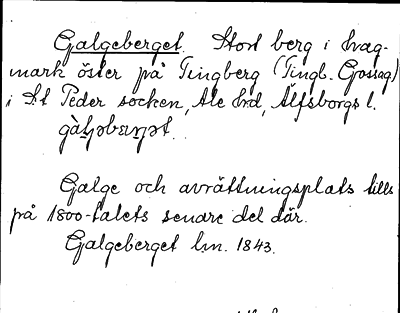 Galgeberget. Stort berg i krag-
mark öster på Tingberg (Tingb. Gossag)
i St Peder socken, Ale hd, Älfsborgs l.
Galge och avrättningsplats tills
på 1800-talets senare del där.
Galgeberget lm. 1843.